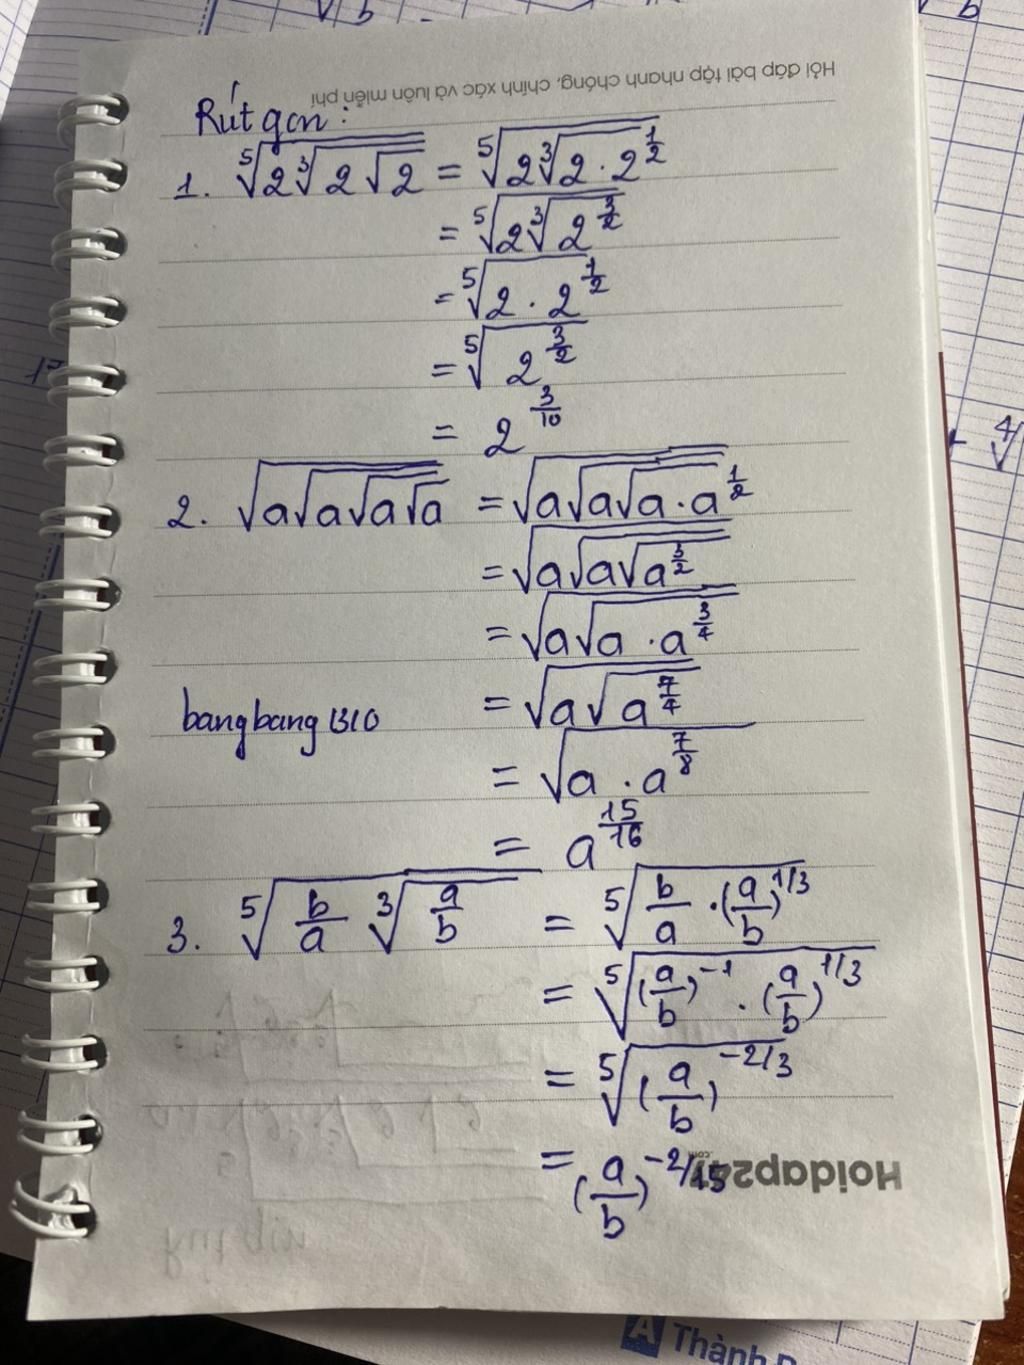 Hỏi đáp bài tập nhanh chóng, chính xác và luôn miễn phí
Rút gọn:
1. ⁵√(2³√(2√2)) = ⁵√(2³√(2 · 2^(1/2)))
= ⁵√(2³√(2^(3/2)))
= ⁵√(2 · 2^(1/2))
= ⁵√(2^(3/2))
= 2^(3/10)
2. √(a√(a√(a√a))) = √(a√(a√(a · a^(1/2))))
= √(a√(a√(a^(3/2))))
= √(a√(a · a^(3/4)))
= √(a√(a^(7/4)))
bangbang1310
= √(a · a^(7/8))
= a^(15/16)
3. ⁵√(b/a ³√(a/b)) = ⁵√(b/a · (a/b)^(1/3))
= ⁵√((a/b)^(-1) · (a/b)^(1/3))
= ⁵√((a/b)^(-2/3))
= (a/b)^(-2/15)
Hoidap247
.com
A Thành